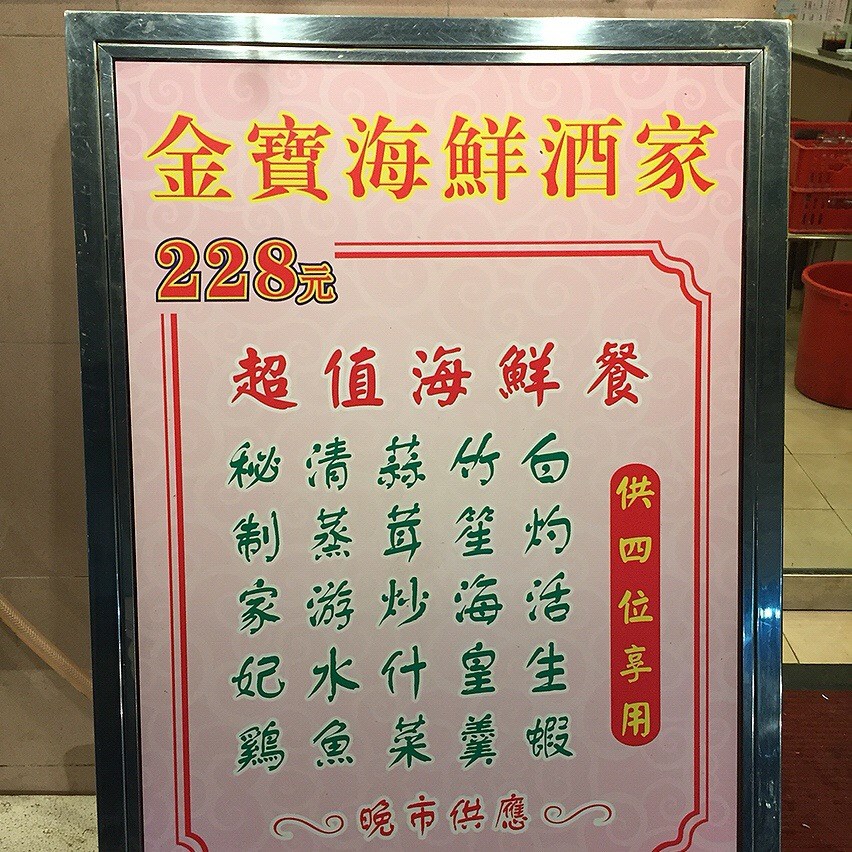 金寶海鮮酒家
228元
超值海鮮餐
供四位享用
白灼活生蝦
竹笙海皇羹
蒜茸炒什菜
清蒸游水魚
秘制家妃鷄
晚市供應